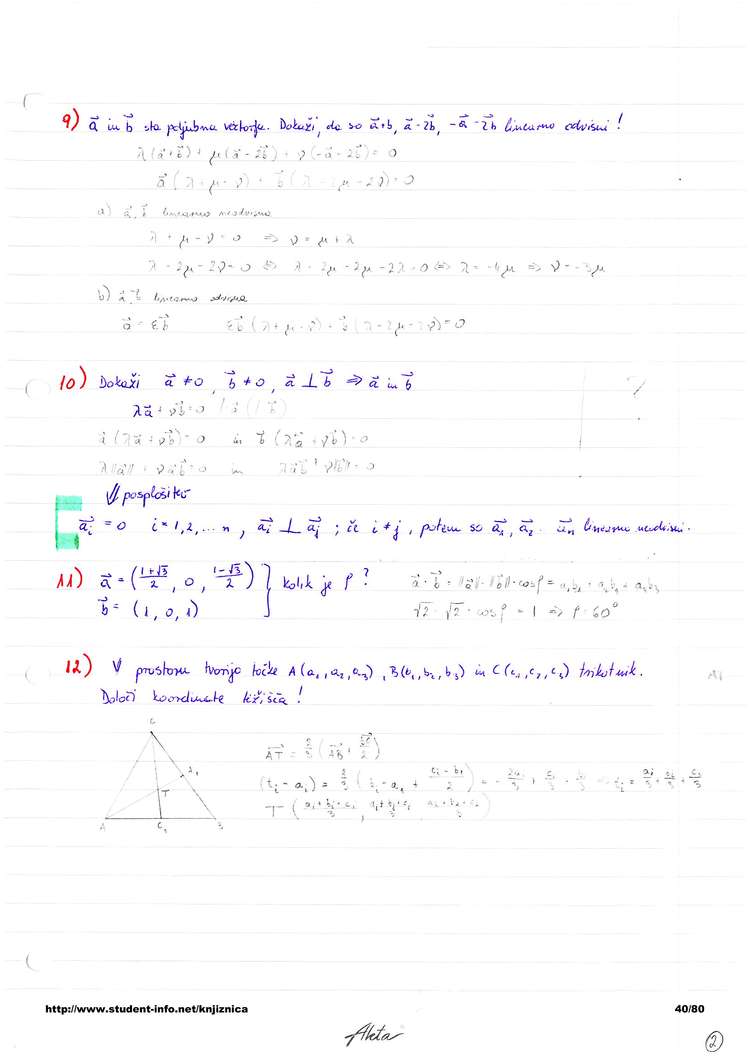 9) a⃗ in b⃗ sta poljubna vektorja. Dokaži, da so a⃗+b, a⃗-2b⃗, -a⃗-2b⃗ linearno odvisni!
λ(a⃗+b⃗) + μ(a⃗-2b⃗) + ν(-a⃗-2b⃗) = 0
a⃗(λ+μ-ν) + b⃗(λ-2μ-2ν) = 0
a) a⃗, b⃗ linearno neodvisna
λ+μ-ν = 0 ⇒ ν = μ+λ
λ-2μ-2ν = 0 ⇔ λ-2μ-2μ-2λ = 0 ⇔ λ = -4μ ⇒ ν = -3μ
b) a⃗, b⃗ linearno odvisna
a⃗ = εb⃗ εb⃗(λ+μ-ν) + b⃗(λ-2μ-2ν) = 0
10) Dokaži a⃗ ≠ 0, b⃗ ≠ 0, a⃗ ⊥ b⃗ ⇒ a⃗ in b⃗ ?
λa⃗ + νb⃗ = 0 /a⃗ (/b⃗)
a⃗(λa⃗ + νb⃗) = 0 in b⃗(λa⃗ + νb⃗) = 0
⇓ posplošitev
a⃗ᵢ = 0 i = 1, 2, ... n, a⃗ᵢ ⊥ a⃗ⱼ ; če i ≠ j, potem so a⃗₁, a⃗₂ .. a⃗ₙ linearno neodvisni.
11) a⃗ = ((1+√3)/2, 0, (1-√3)/2) } kolik je φ? a⃗·b⃗ = ||a⃗||·||b⃗||·cosφ = a₁b₁ + a₂b₂ + a₃b₃
b⃗ = (1, 0, 1) √2·√2·cosφ = 1 ⇒ φ = 60°
12) V prostoru tvorijo točke A(a₁, a₂, a₃), B(b₁, b₂, b₃) in C(c₁, c₂, c₃) trikotnik.
Določi koordinate težišča!
C
A₁
T
A C₁ B
A⃗T = 2/3 (A⃗B + B⃗C/2)
http://www.student-info.net/knjiznica 40/80
Akta
2